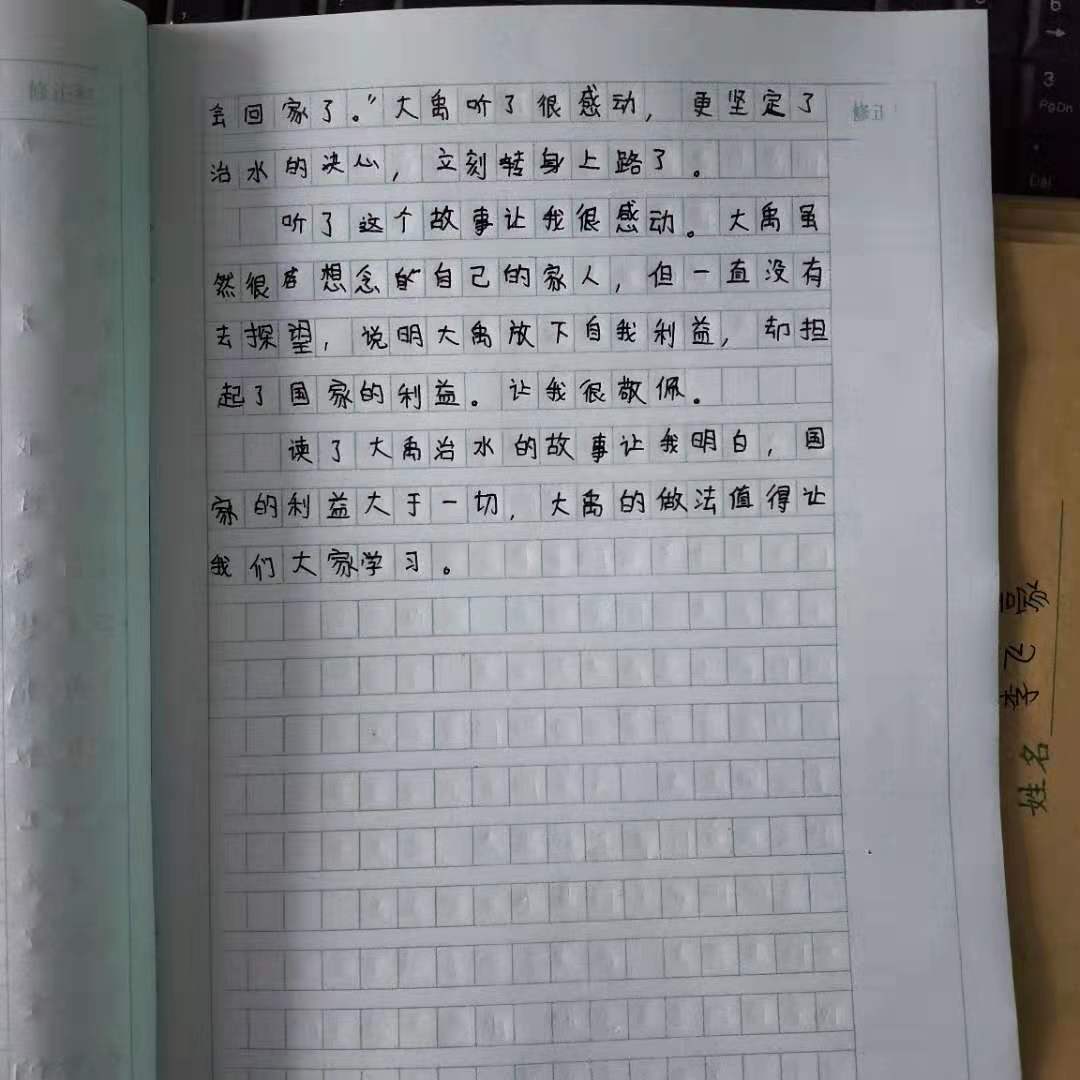 会回家了。”大禹听了很感动，更坚定了
治水的决心，立刻转身上路了。
听了这个故事让我很感动。大禹虽
然很想念自己的家人，但一直没有
去探望，说明大禹放下自我利益，却担
起了国家的利益。让我很敬佩。
读了大禹治水的故事让我明白，国
家的利益大于一切，大禹的做法值得让
我们大家学习。
姓名 李飞豪
6
3
PgDn
Del